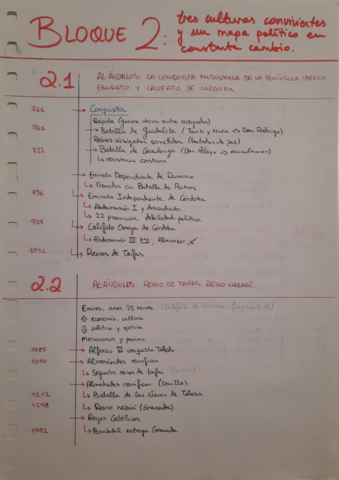 BLOQUE 2:
tres culturas convivientes
y un mapa político en
constante cambio.
2.1
AL-ÁNDALUS: LA CONQUISTA MUSULMANA DE LA PENÍNSULA IBÉRICA
EMIRATO Y CALIFATO DE CÓRDOBA
711 → Conquista
Rápida (guerra interna entre visigodos)
711 → Batalla de Guadalete (Tariq y Muza vs Don Rodrigo)
Reyes visigodos sometidos (tratados de paz)
722 → Batalla de Covadonga (Don Pelayo vs musulmanes)
↳ resistencia cristiana
→ Emirato Dependiente de Damasco
↳ Frenados en Batalla de Poitiers
756 → Emirato Independiente de Córdoba
↳ Abderramán I y descendientes
↳ 22 provincias, debilidad política
929 → Califato Omeya de Córdoba
↳ Abderramán III, Almanzor
1031 → Reinos de Taifas
2.2
AL-ÁNDALUS: REINO DE TAIFAS, REINO NAZARÍ
25 reinos (Califato de Córdoba fragmentado)
↑ economía, cultura
↓ política y ejército
Mercenarios y parias
1085 → Alfonso VI conquista Toledo
→ Almorávides reunifican
↳ Segundos reinos de taifas
→ Almohades reunifican (Sevilla)
1212 → Batalla de las Navas de Tolosa
↳ Reino nazarí (Granada)
→ Reyes Católicos
↳ Boabdil entrega Granada